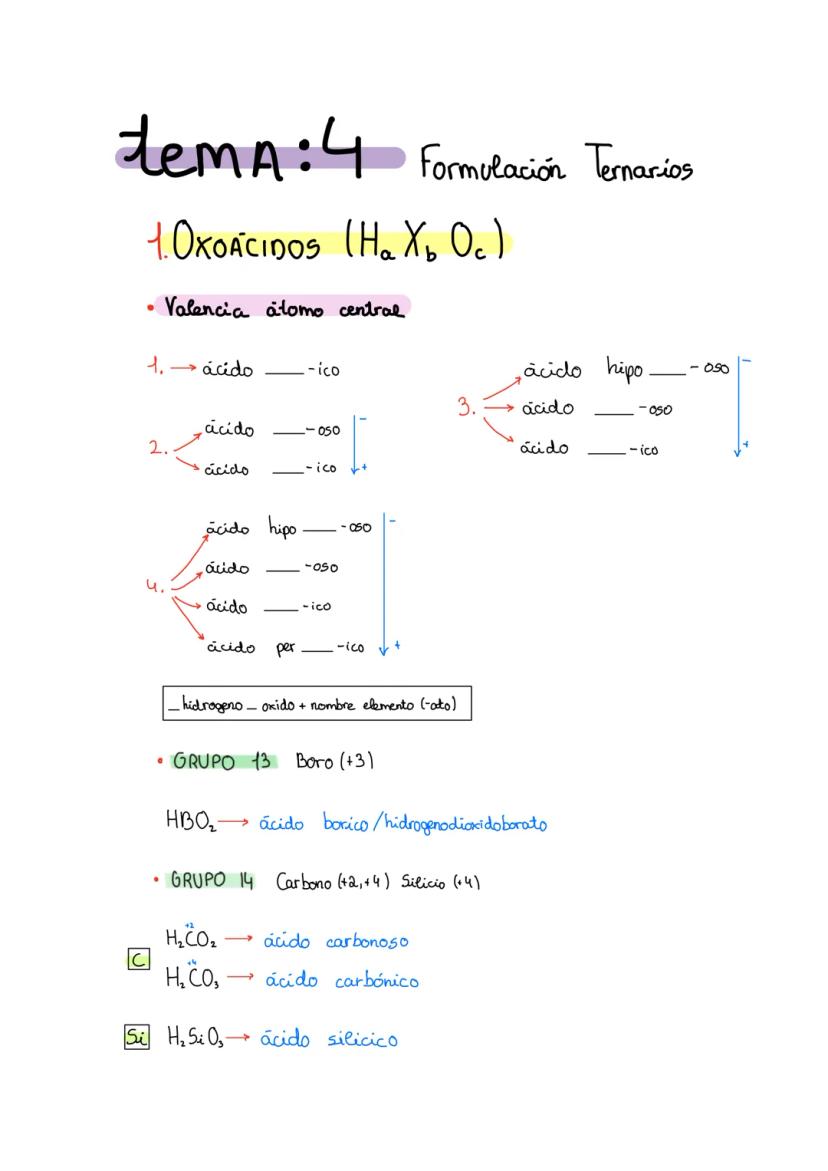 tema:4 Formulación Ternarios
1. OXOÁCIDOS (HₐXbOc)
• Valencia átomo central
1. → ácido ___-ico
2. ácido ___-oso -
ácido ___-ico +
3. ácido hipo ___-oso -
ácido ___-oso
ácido ___-ico +
4. ácido hipo ___-oso -
ácido ___-oso
ácido ___-ico
ácido per ___-ico +
_ hidrogeno _ oxido + nombre elemento (-ato)
• GRUPO 13 Boro (+3)
HBO₂ → ácido borico/hidrogenodioxidoborato
• GRUPO 14 Carbono (+2,+4) Silicio (+4)
C
+2
H₂CO₂ → ácido carbonoso
+4
H₂CO₃ → ácido carbónico
Si H₂SiO₃ → ácido silicico